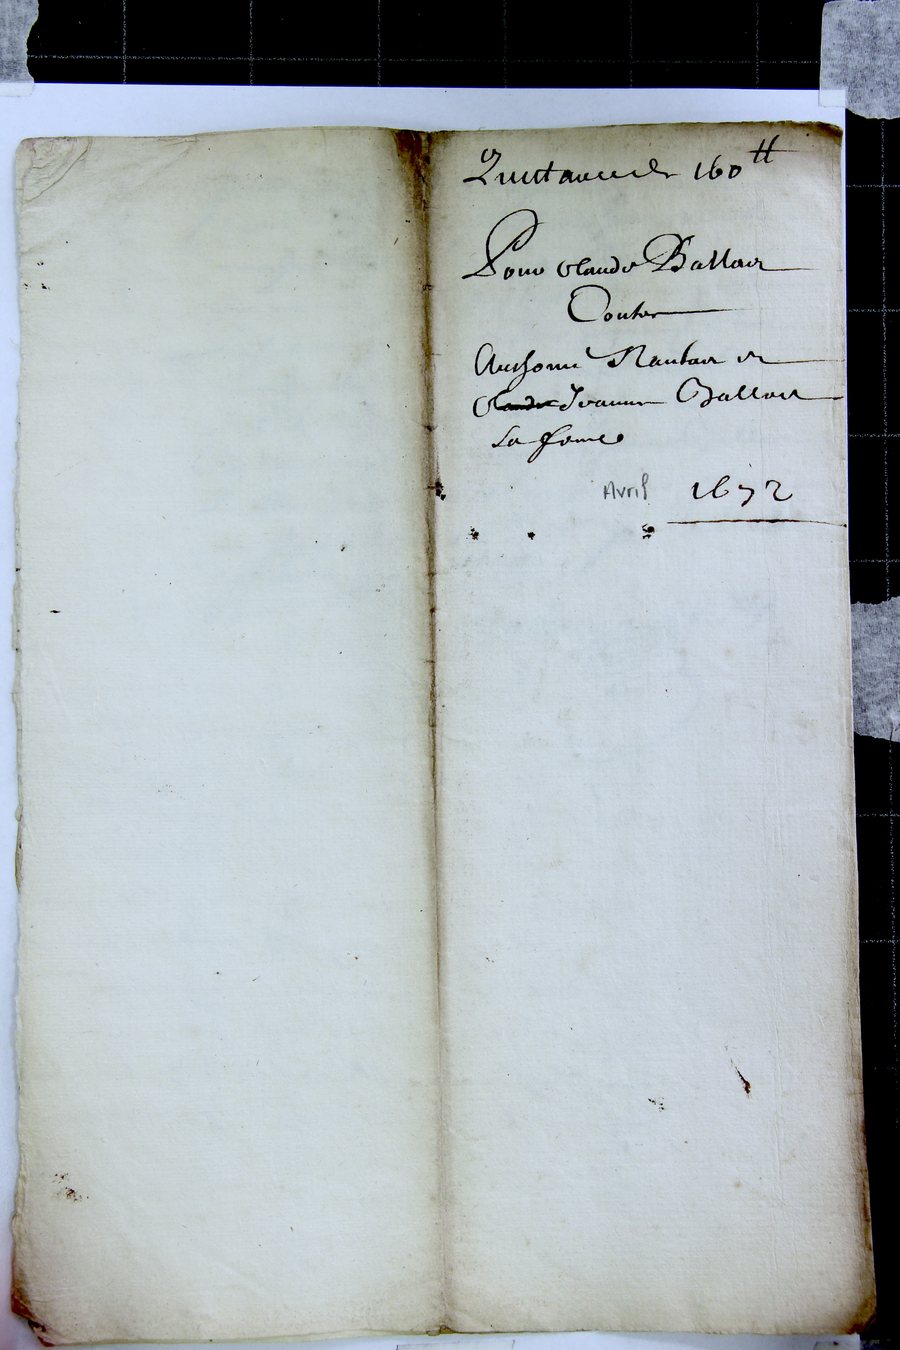 Quittance de 160 tt
Pour Claude Ballair
Contre
Anthoine Nanbair et
Claude Jeanne Ballair
Sa feme
Avril 1672